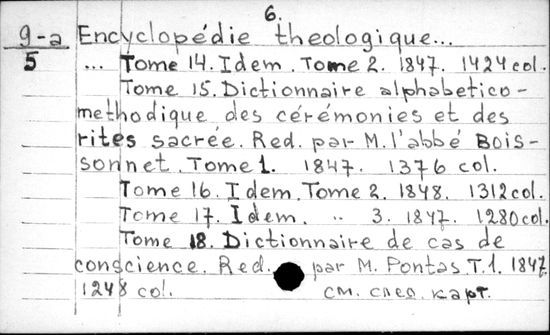 6.
9-a Encyclopédie theologique...
5 ... Tome 14. Idem. Tome 2. 1847. 1424 col.
Tome 15. Dictionnaire alphabetico-
methodique des cérémonies et des
rites sacrée. Red. par M. l'abbé Bois-
sonnet. Tome 1. 1847. 1376 col.
Tome 16. Idem. Tome 2. 1848. 1312 col.
Tome 17. Idem. " 3. 1847. 1280 col.
Tome 18. Dictionnaire de cas de
conscience. Red. par M. Pontas T.1. 1847
1248 col. см. след. карт.